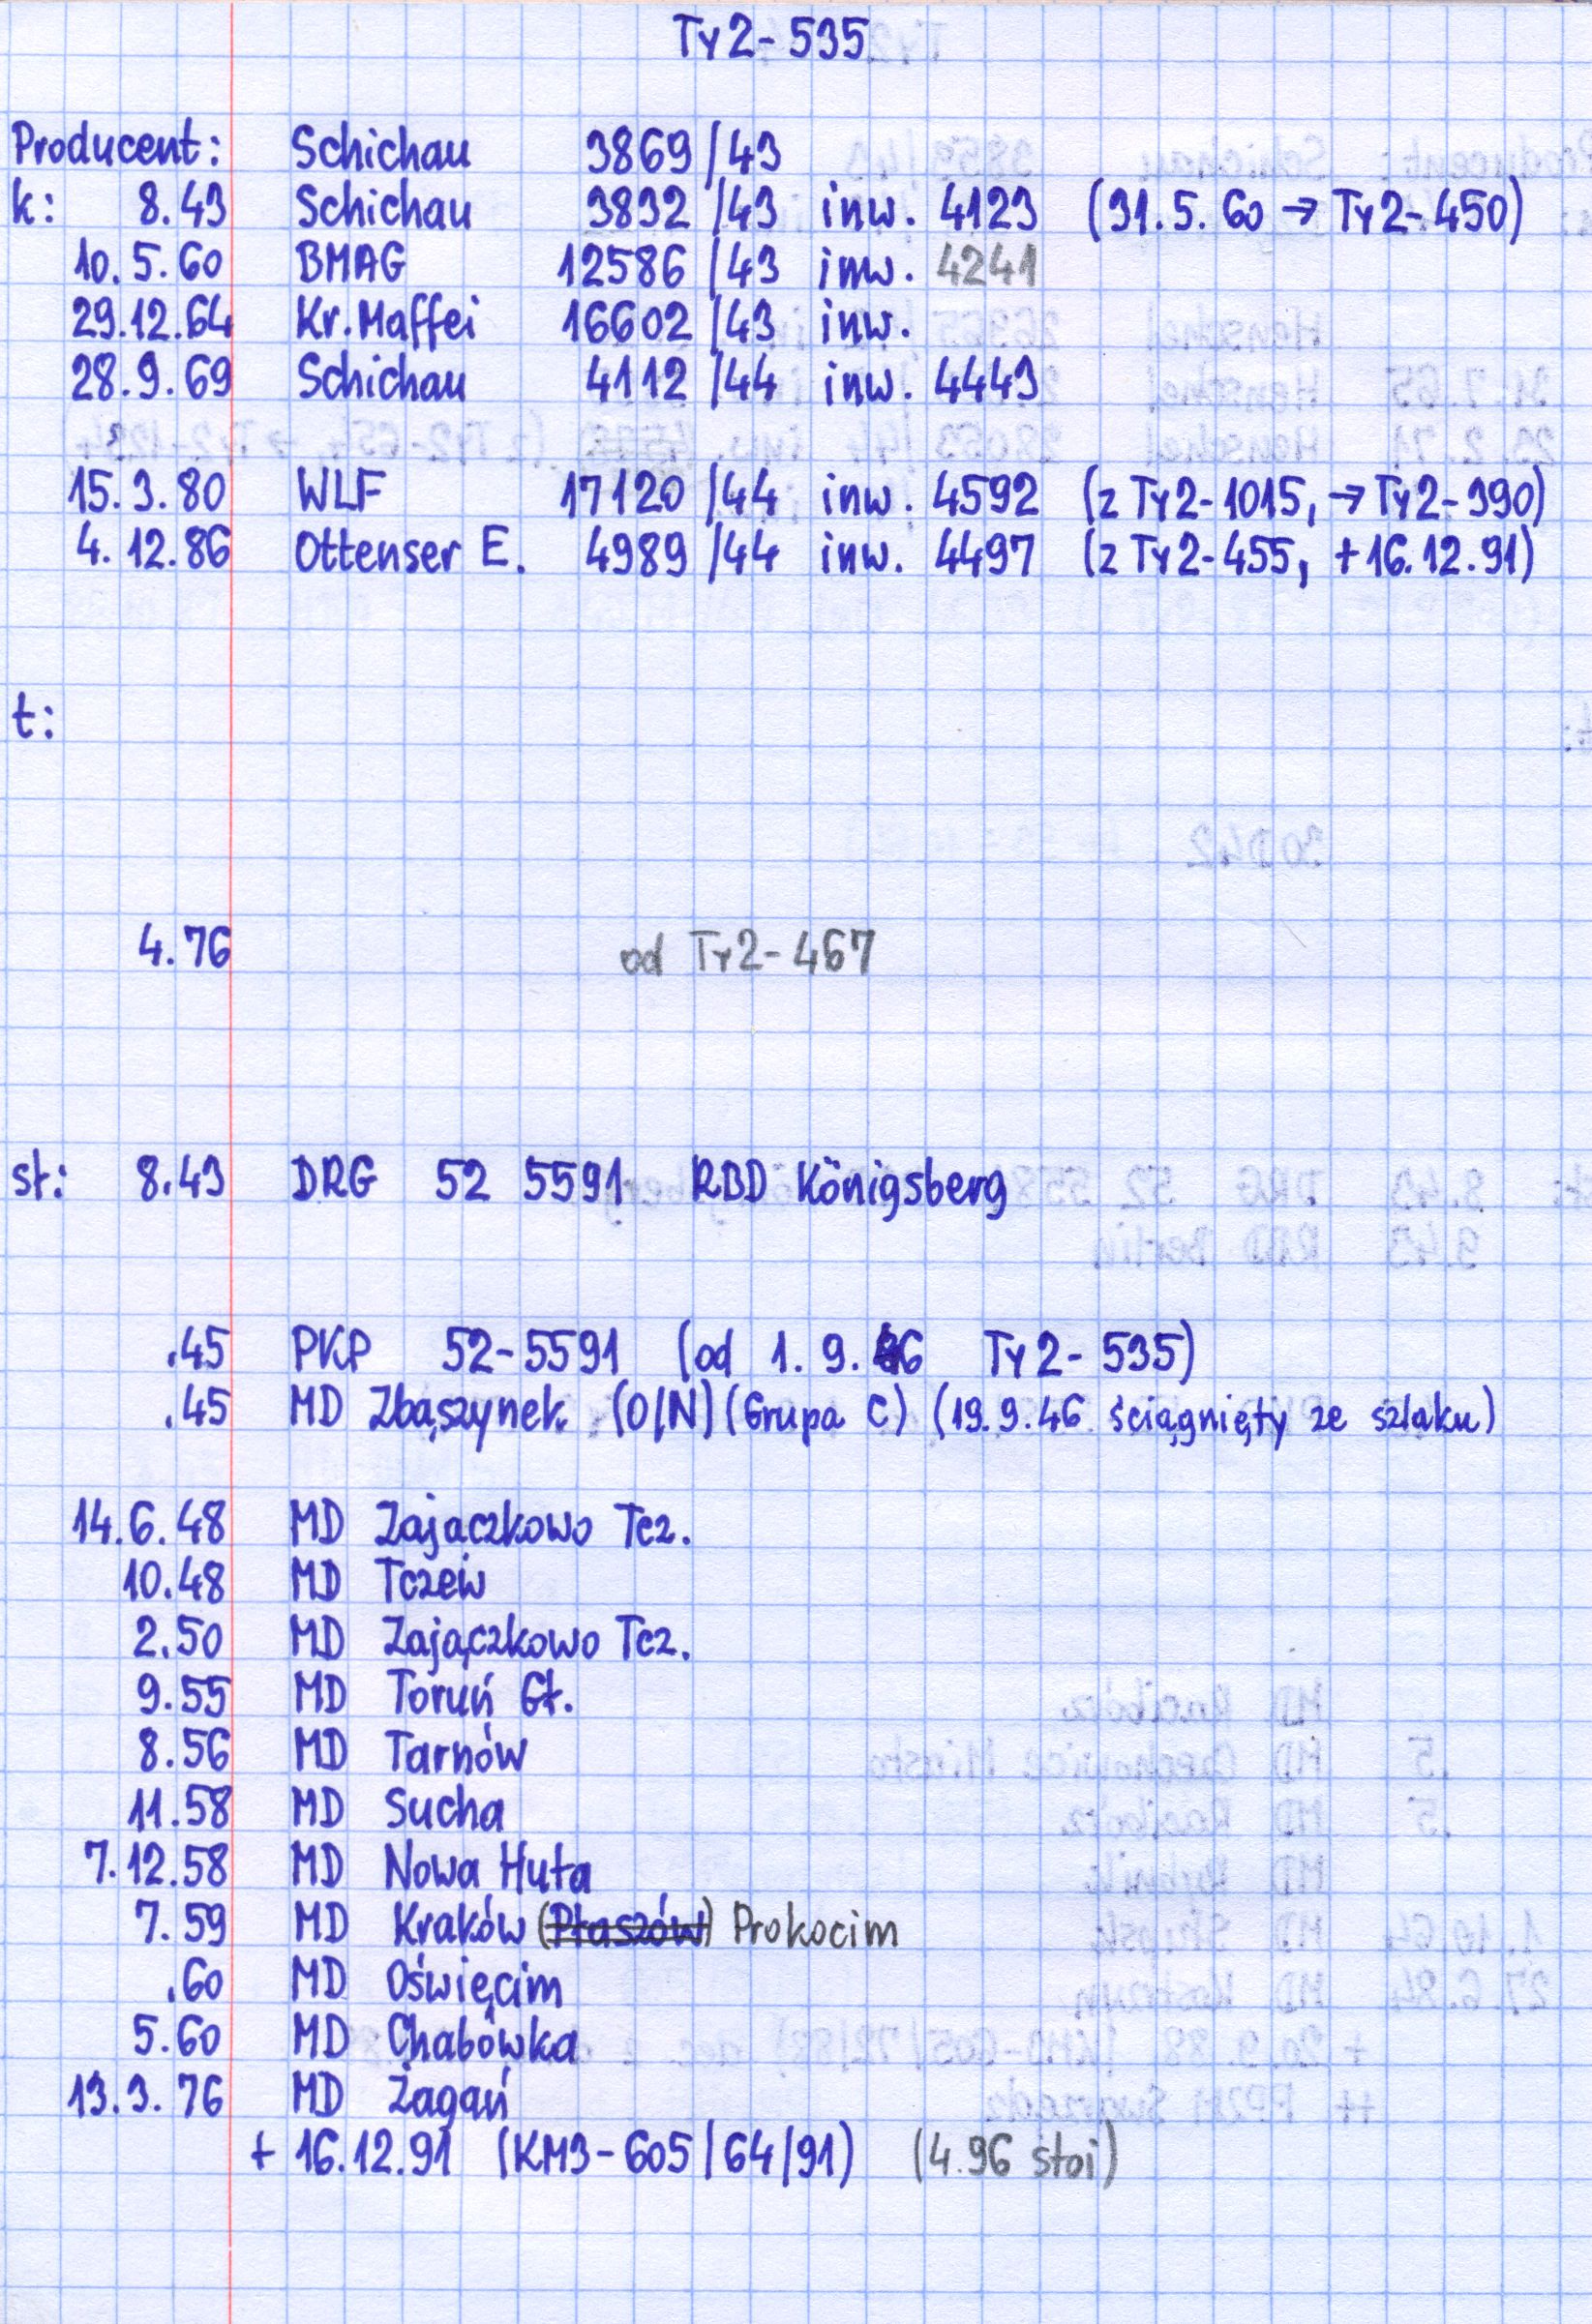 Ty2-535
Producent: Schichau 3869/43
k: 8.43 Schichau 3832/43 inw. 4123 (31.5.60 → Ty2-450)
10.5.60 BMAG 12586/43 inw. 4241
29.12.64 Kr.Maffei 16602/43 inw.
28.9.69 Schichau 4112/44 inw. 4443
15.3.80 WLF 17120/44 inw. 4592 (z Ty2-1015, → Ty2-390)
4.12.86 Ottenser E. 4989/44 inw. 4497 (z Ty2-455, +16.12.91)
t:
4.76 od Ty2-467
st: 8.43 DRG 52 5591 RBD Königsberg
.45 PKP 52-5591 (od 1.9.46 Ty2-535)
.45 MD Zbąszynek (O/N) (Grupa C) (19.9.46 ściągnięty ze szlaku)
14.6.48 MD Zajączkowo Tcz.
10.48 MD Tczew
2.50 MD Zajączkowo Tcz.
9.55 MD Toruń Gł.
8.56 MD Tarnów
11.58 MD Sucha
7.12.58 MD Nowa Huta
7.59 MD Kraków (Płaszów) Prokocim
.60 MD Oświęcim
5.60 MD Chabówka
13.3.76 MD Żagań
+ 16.12.91 (KM3-605/64/91) (4.96 stoi)